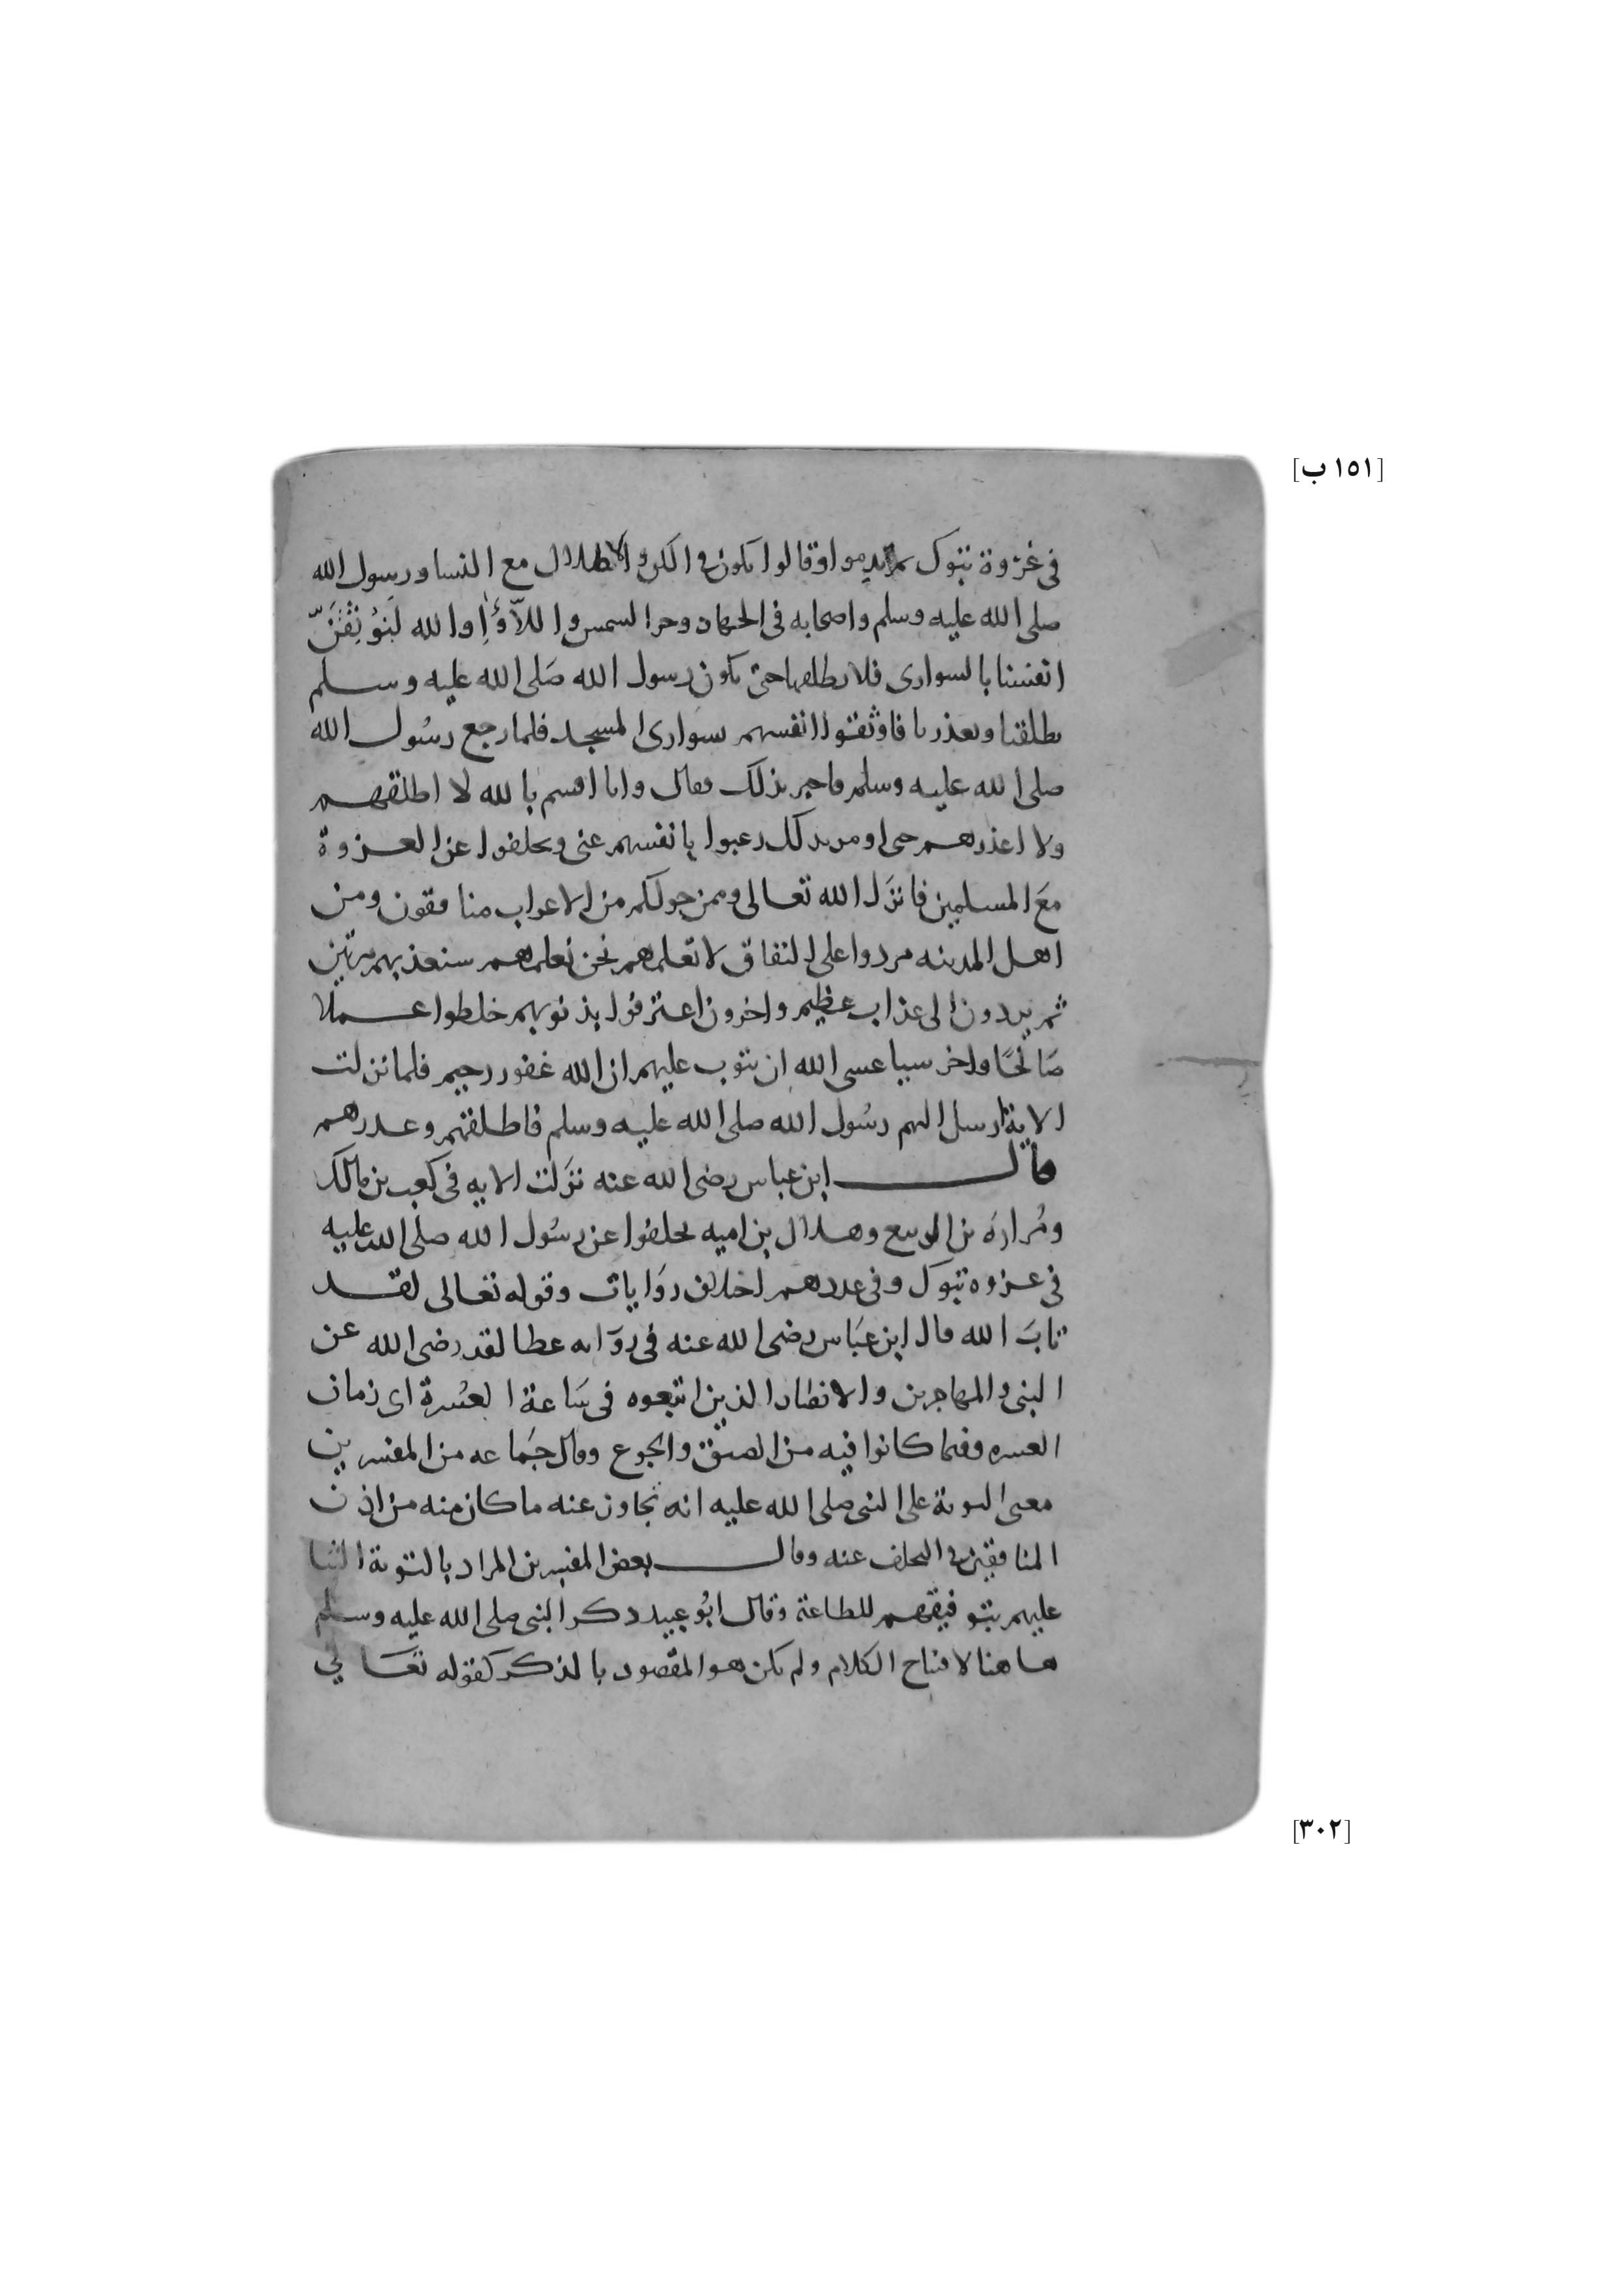 [١٥١ ب]
في غزوة تبوك ثم ندموا وقالوا نكون في الكن والاظلال مع النسا ورسول الله
صلى الله عليه وسلم واصحابه في الجهاد وحر الشمس واللأواء والله لنوثقن
انفسنا بالسواري فلا نطلقها حتى يكون رسول الله صلى الله عليه وسلم
يطلقنا ويعذرنا فاوثقوا انفسهم بسواري المسجد فلما رجع رسول الله
صلى الله عليه وسلم فاخبر بذلك فقال وانا اقسم بالله لا اطلقهم
ولا اعذرهم حتى اومر بذلك رغبوا بانفسهم عني وتخلفوا عن الغزوة
مع المسلمين فانزل الله تعالى وممن حولكم من الاعراب منافقون ومن
اهل المدينه مردوا على النفاق لا تعلمهم نحن نعلمهم سنعذبهم مرتين
ثم يردون الى عذاب عظيم واخرون اعترفوا بذنوبهم خلطوا عملا
صالحا واخر سيا عسى الله ان يتوب عليهم ان الله غفور رحيم فلما نزلت
الاية ارسل اليهم رسول الله صلى الله عليه وسلم فاطلقهم وعذرهم
قال ابن عباس رضى الله عنه نزلت الايه في كعب بن مالك
ومراره بن الربيع وهلال بن اميه تخلفوا عن رسول الله صلى الله عليه
في غزوه تبوك وفي عددهم اختلاف روايات وقوله تعالى لقد
تاب الله قال ابن عباس رضى الله عنه في روايه عطا لقد رضى الله عن
النبي والمهاجرين والانصار الذين اتبعوه في ساعة العسرة اى زمان
العسره وفيما كانوا فيه من الضيق والجوع وقال جماعه من المفسرين
معنى التوبة على النبي صلى الله عليه انه تجاوز عنه ما كان منه من اذن
المنافقين في التخلف عنه وقال بعض المفسرين المراد بالتوبة الثنا
عليهم بتوفيقهم للطاعة وقال ابو عبيد ذكر النبي صلى الله عليه وسلم
هاهنا لافتتاح الكلام ولم يكن هو المقصود بالذكر كقوله تعالي
[٣٠٢]